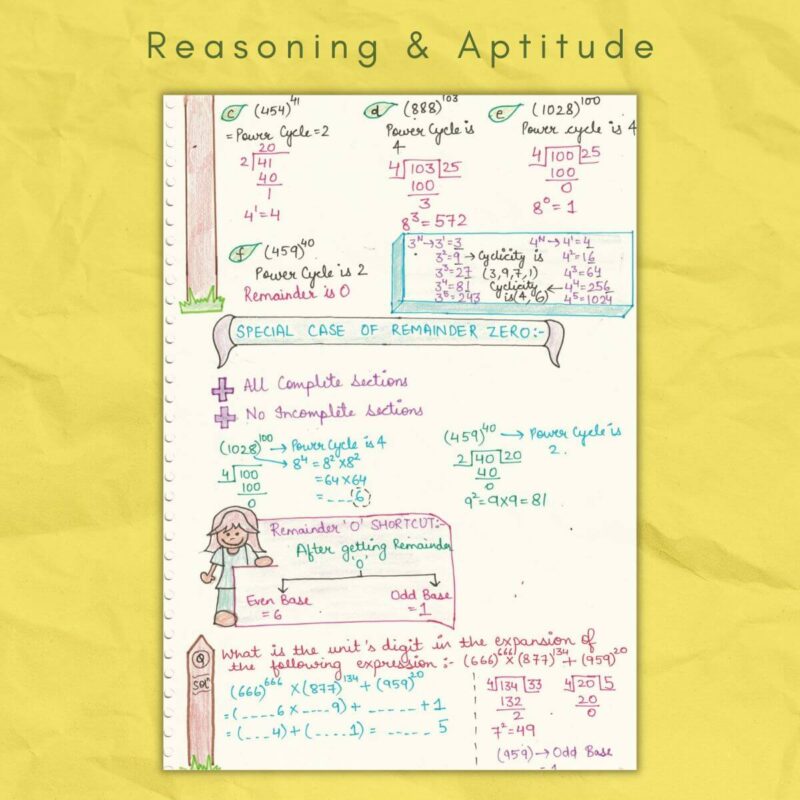 Reasoning & Aptitude
c (454)^41
= Power Cycle = 2
20
2 41
40
1
4^1 = 4
d (888)^103
Power Cycle is
4
4 103 25
100
3
8^3 = 572
e (1028)^100
Power cycle is 4
4 100 25
100
0
8^0 = 1
f (459)^40
Power Cycle is 2
Remainder is 0
3^N → 3^1 = 3
3^2 = 9 → Cyclicity is
3^3 = 27 (3,9,7,1)
3^4 = 81
3^5 = 243
4^N → 4^1 = 4
4^2 = 16
4^3 = 64
Cyclicity ← 4^4 = 256
is (4, 6) 4^5 = 1024
SPECIAL CASE OF REMAINDER ZERO:-
All Complete sections
No Incomplete sections
(1028)^100 → Power Cycle is 4
→ 8^4 = 8^2 × 8^2
= 64 × 64
= _ _ _ 6
4 100
100
0
(459)^40 → Power Cycle is
2.
2 40 20
40
0
9^2 = 9 × 9 = 81
Remainder '0' SHORTCUT:-
After getting Remainder
'0'
Even Base
= 6
Odd Base
= 1
Q What is the unit's digit in the expansion of
the following expression :- (666)^666 × (877)^134 + (959)^20
SOL^n
(666)^666 × (877)^134 + (959)^20
= (_ _ _ _ 6 × _ _ _ _ 9) + _ _ _ _ _ + 1
= (_ _ _ 4) + (_ _ _ _ 1) = _ _ _ _ _ 5
4 134 33
132
2
7^2 = 49
4 20 5
20
0
(959) → Odd Base